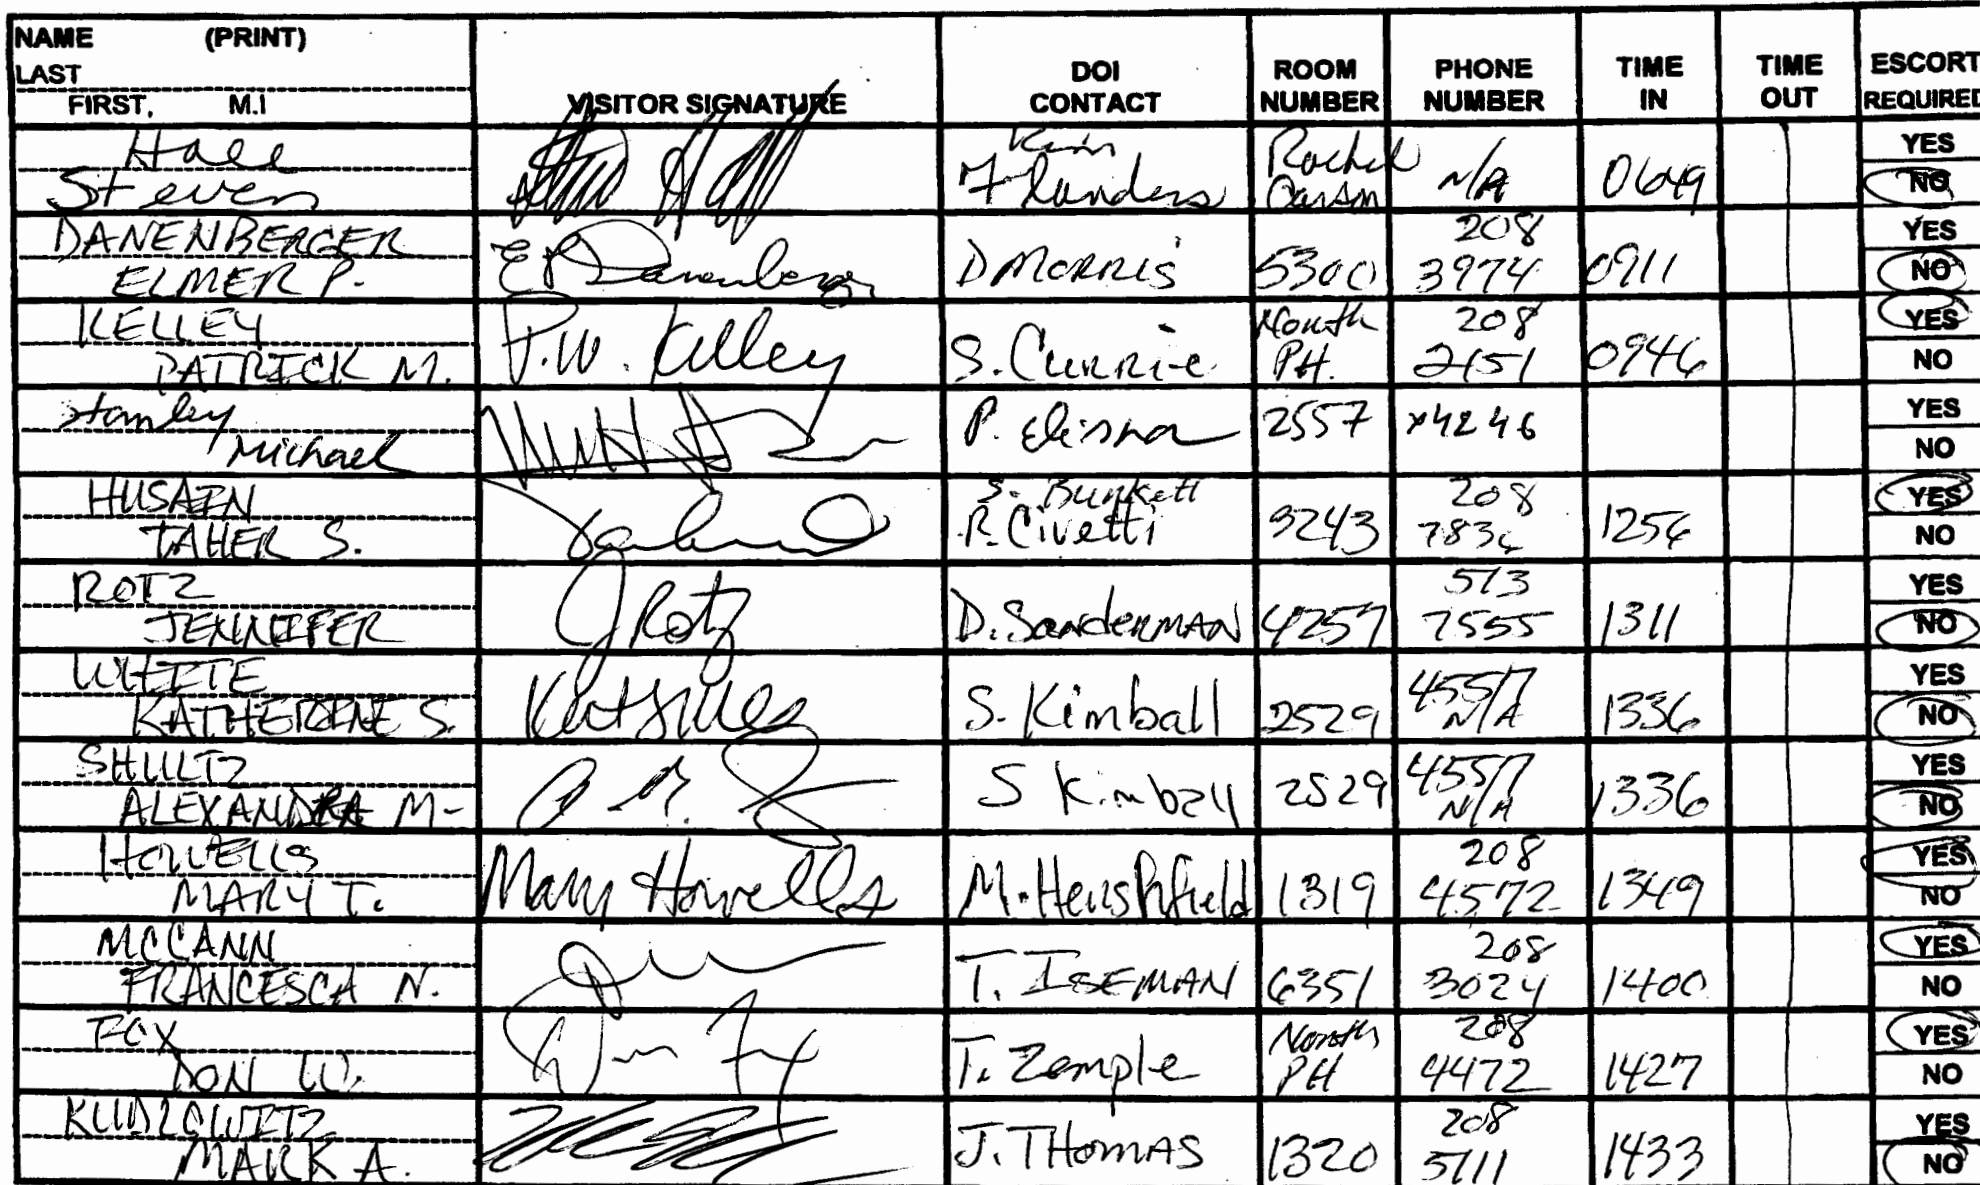 NAME (PRINT)
LAST
FIRST, M.I
VISITOR SIGNATURE
DOI
CONTACT
ROOM
NUMBER
PHONE
NUMBER
TIME
IN
TIME
OUT
ESCORT
REQUIRED
Steven
Kim
Flanders
Rachel
Carson
N/A
0649
YES
NO
DANENBERGER
ELMER P.
D MORRIS
5300
208
3974
0911
YES
NO
KELLEY
PATRICK M.
P.W. Kelley
S. Currie
North
PH.
208
2151
0946
YES
NO
Michael
2557
x4246
YES
NO
HUSAIN
TAHER S.
S. Burkett
R. Civetti
3243
208
1256
YES
NO
ROTZ
JENNIFER
J Rotz
D. SanderMAN
4257
513
7555
1311
YES
NO
WHITE
KATHERINE S.
S. Kimball
2529
4551
N/A
1336
YES
NO
SHULTZ
ALEXANDRA M-
S Kimball
2529
4551
N/A
1336
YES
NO
HOWELLS
MARY T.
Mary Howells
M. Hershfield
1319
208
4572
1349
YES
NO
MCCANN
FRANCESCA N.
T. ISEMAN
6351
208
3024
1400
YES
NO
FOX
DON W.
T. Zemple
North
PH
208
4472
1427
YES
NO
KUDLOWITZ
MARK A.
J. THOMAS
1320
208
5111
1433
YES
NO